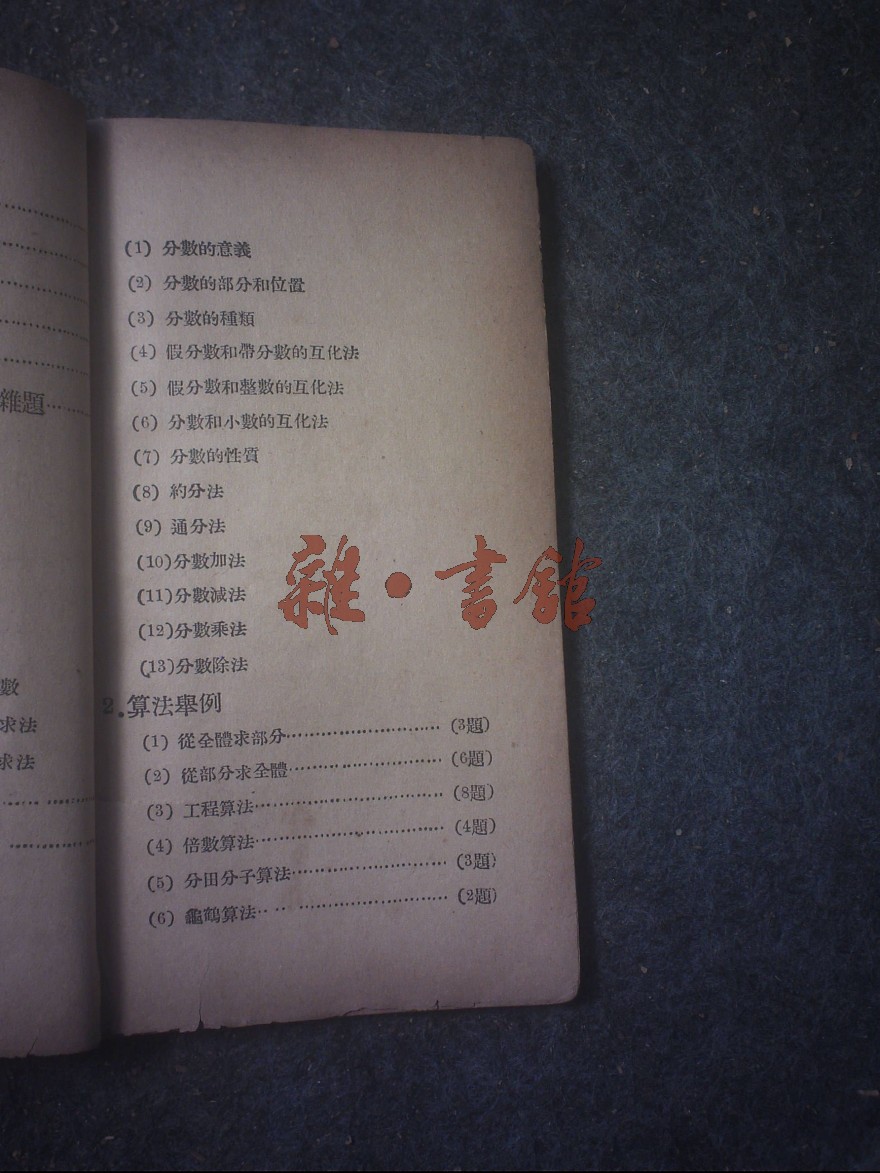 雜題
數
求法
求法
(1) 分數的意義
(2) 分數的部分和位置
(3) 分數的種類
(4) 假分數和帶分數的互化法
(5) 假分數和整數的互化法
(6) 分數和小數的互化法
(7) 分數的性質
(8) 約分法
(9) 通分法
(10)分數加法
(11)分數減法
(12)分數乘法
(13)分數除法
2.算法舉例
(1) 從全體求部分……………………(3題)
(2) 從部分求全體……………………(6題)
(3) 工程算法……………………(8題)
(4) 倍數算法……………………(4題)
(5) 分田分子算法……………………(3題)
(6) 龜鶴算法……………………(2題)
雜·書館